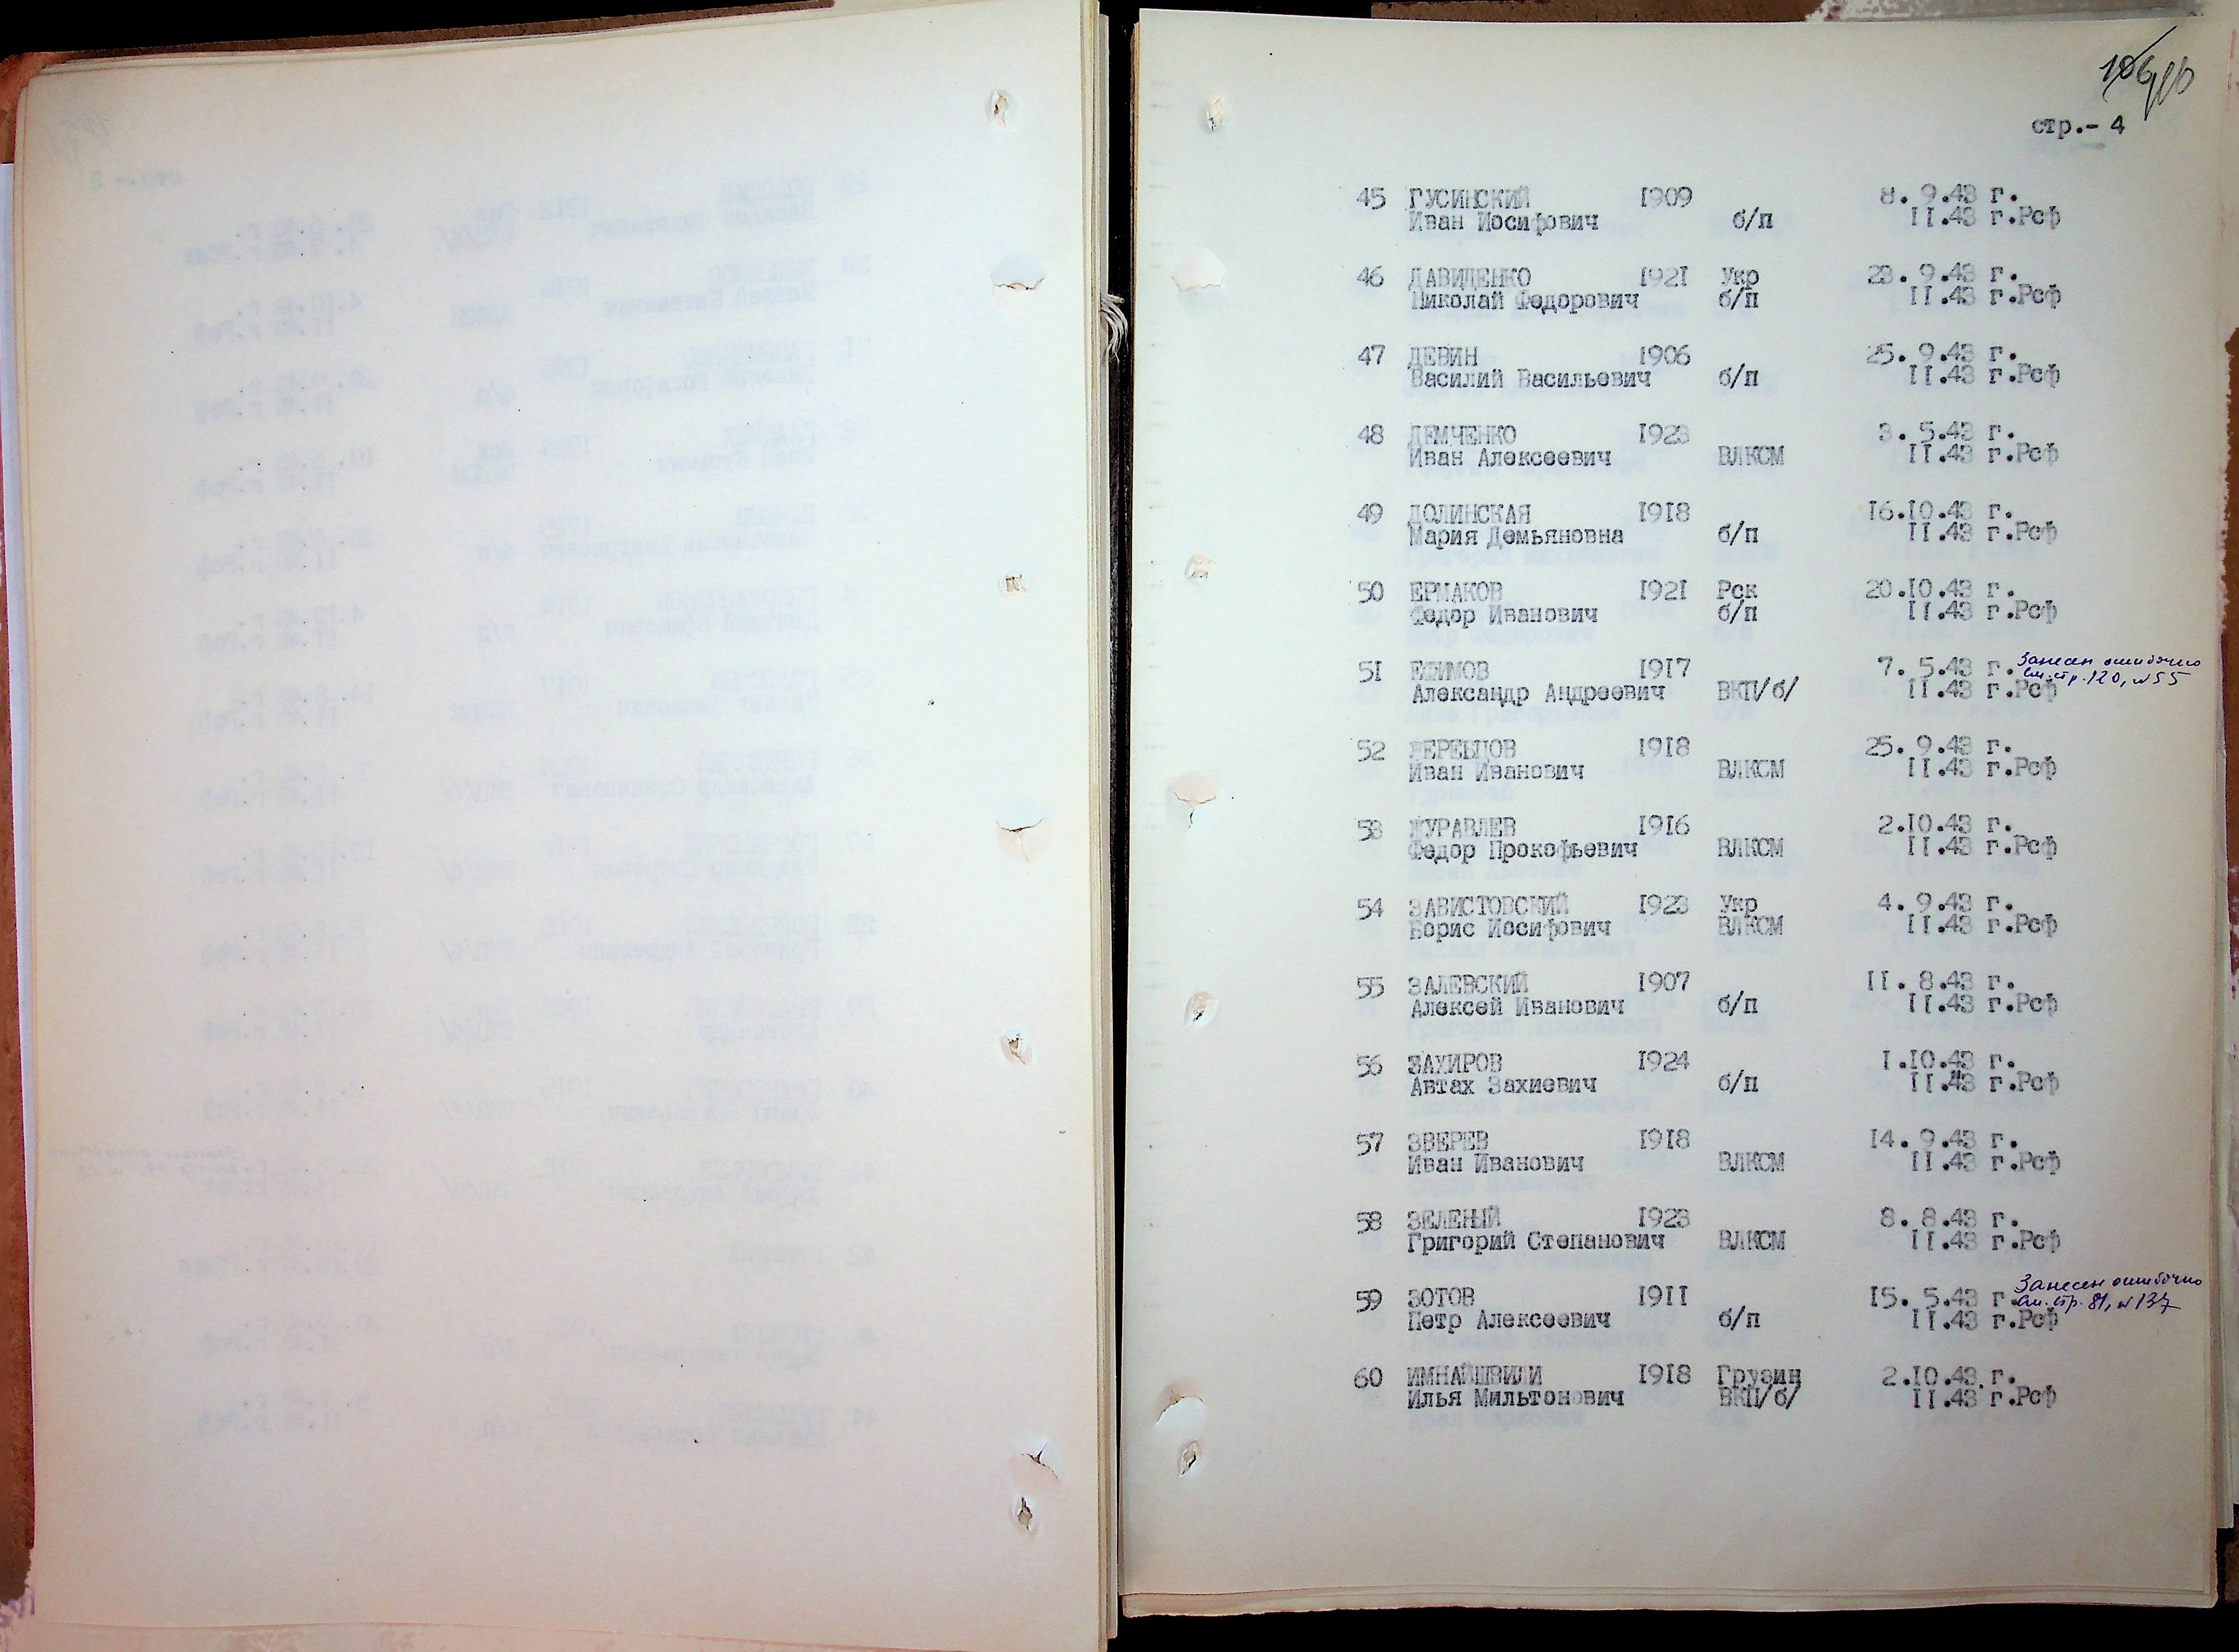 стр.- 4
45 ГУСИНСКИЙ 1909 8. 9.43 г.
Иван Иосифович б/п 11.43 г.Рсф
46 ДАВИДЕНКО 1921 Укр 23. 9.43 г.
Николай Федорович б/п 11.43 г.Рсф
47 ДЕВИН 1906 25. 9.43 г.
Василий Васильевич б/п 11.43 г.Рсф
48 ДЕМЧЕНКО 1923 3. 5.43 г.
Иван Алексеевич ВЛКСМ 11.43 г.Рсф
49 ДОЛИНСКАЯ 1918 16.10.43 г.
Мария Демьяновна б/п 11.43 г.Рсф
50 ЕРМАКОВ 1921 Рск 20.10.43 г.
Федор Иванович б/п 11.43 г.Рсф
51 ЕФИМОВ 1917 7. 5.43 г. Занесен ошибочно
см. стр. 120, №55
Александр Андреевич ВКП/б/ 11.43 г.Рсф
52 ЖЕРЕБЦОВ 1918 25. 9.43 г.
Иван Иванович ВЛКСМ 11.43 г.Рсф
53 ЖУРАВЛЕВ 1916 2.10.43 г.
Федор Прокофьевич ВЛКСМ 11.43 г.Рсф
54 ЗАВИСТОВСКИЙ 1923 Укр 4. 9.43 г.
Борис Иосифович ВЛКСМ 11.43 г.Рсф
55 ЗАЛЕВСКИЙ 1907 11. 8.43 г.
Алексей Иванович б/п 11.43 г.Рсф
56 ЗАХИРОВ 1924 1.10.43 г.
Автах Захиевич б/п 11.43 г.Рсф
57 ЗВЕРЕВ 1918 14. 9.43 г.
Иван Иванович ВЛКСМ 11.43 г.Рсф
58 ЗЕЛЕНЫЙ 1923 8. 8.43 г.
Григорий Степанович ВЛКСМ 11.43 г.Рсф
59 ЗОТОВ 1911 15. 5.43 г. Занесен ошибочно
см. стр. 81, №137
Петр Алексеевич б/п 11.43 г.Рсф
60 ИМНАЙШВИЛИ 1918 Грузин 2.10.43 г.
Илья Мильтонович ВКП/б/ 11.43 г.Рсф